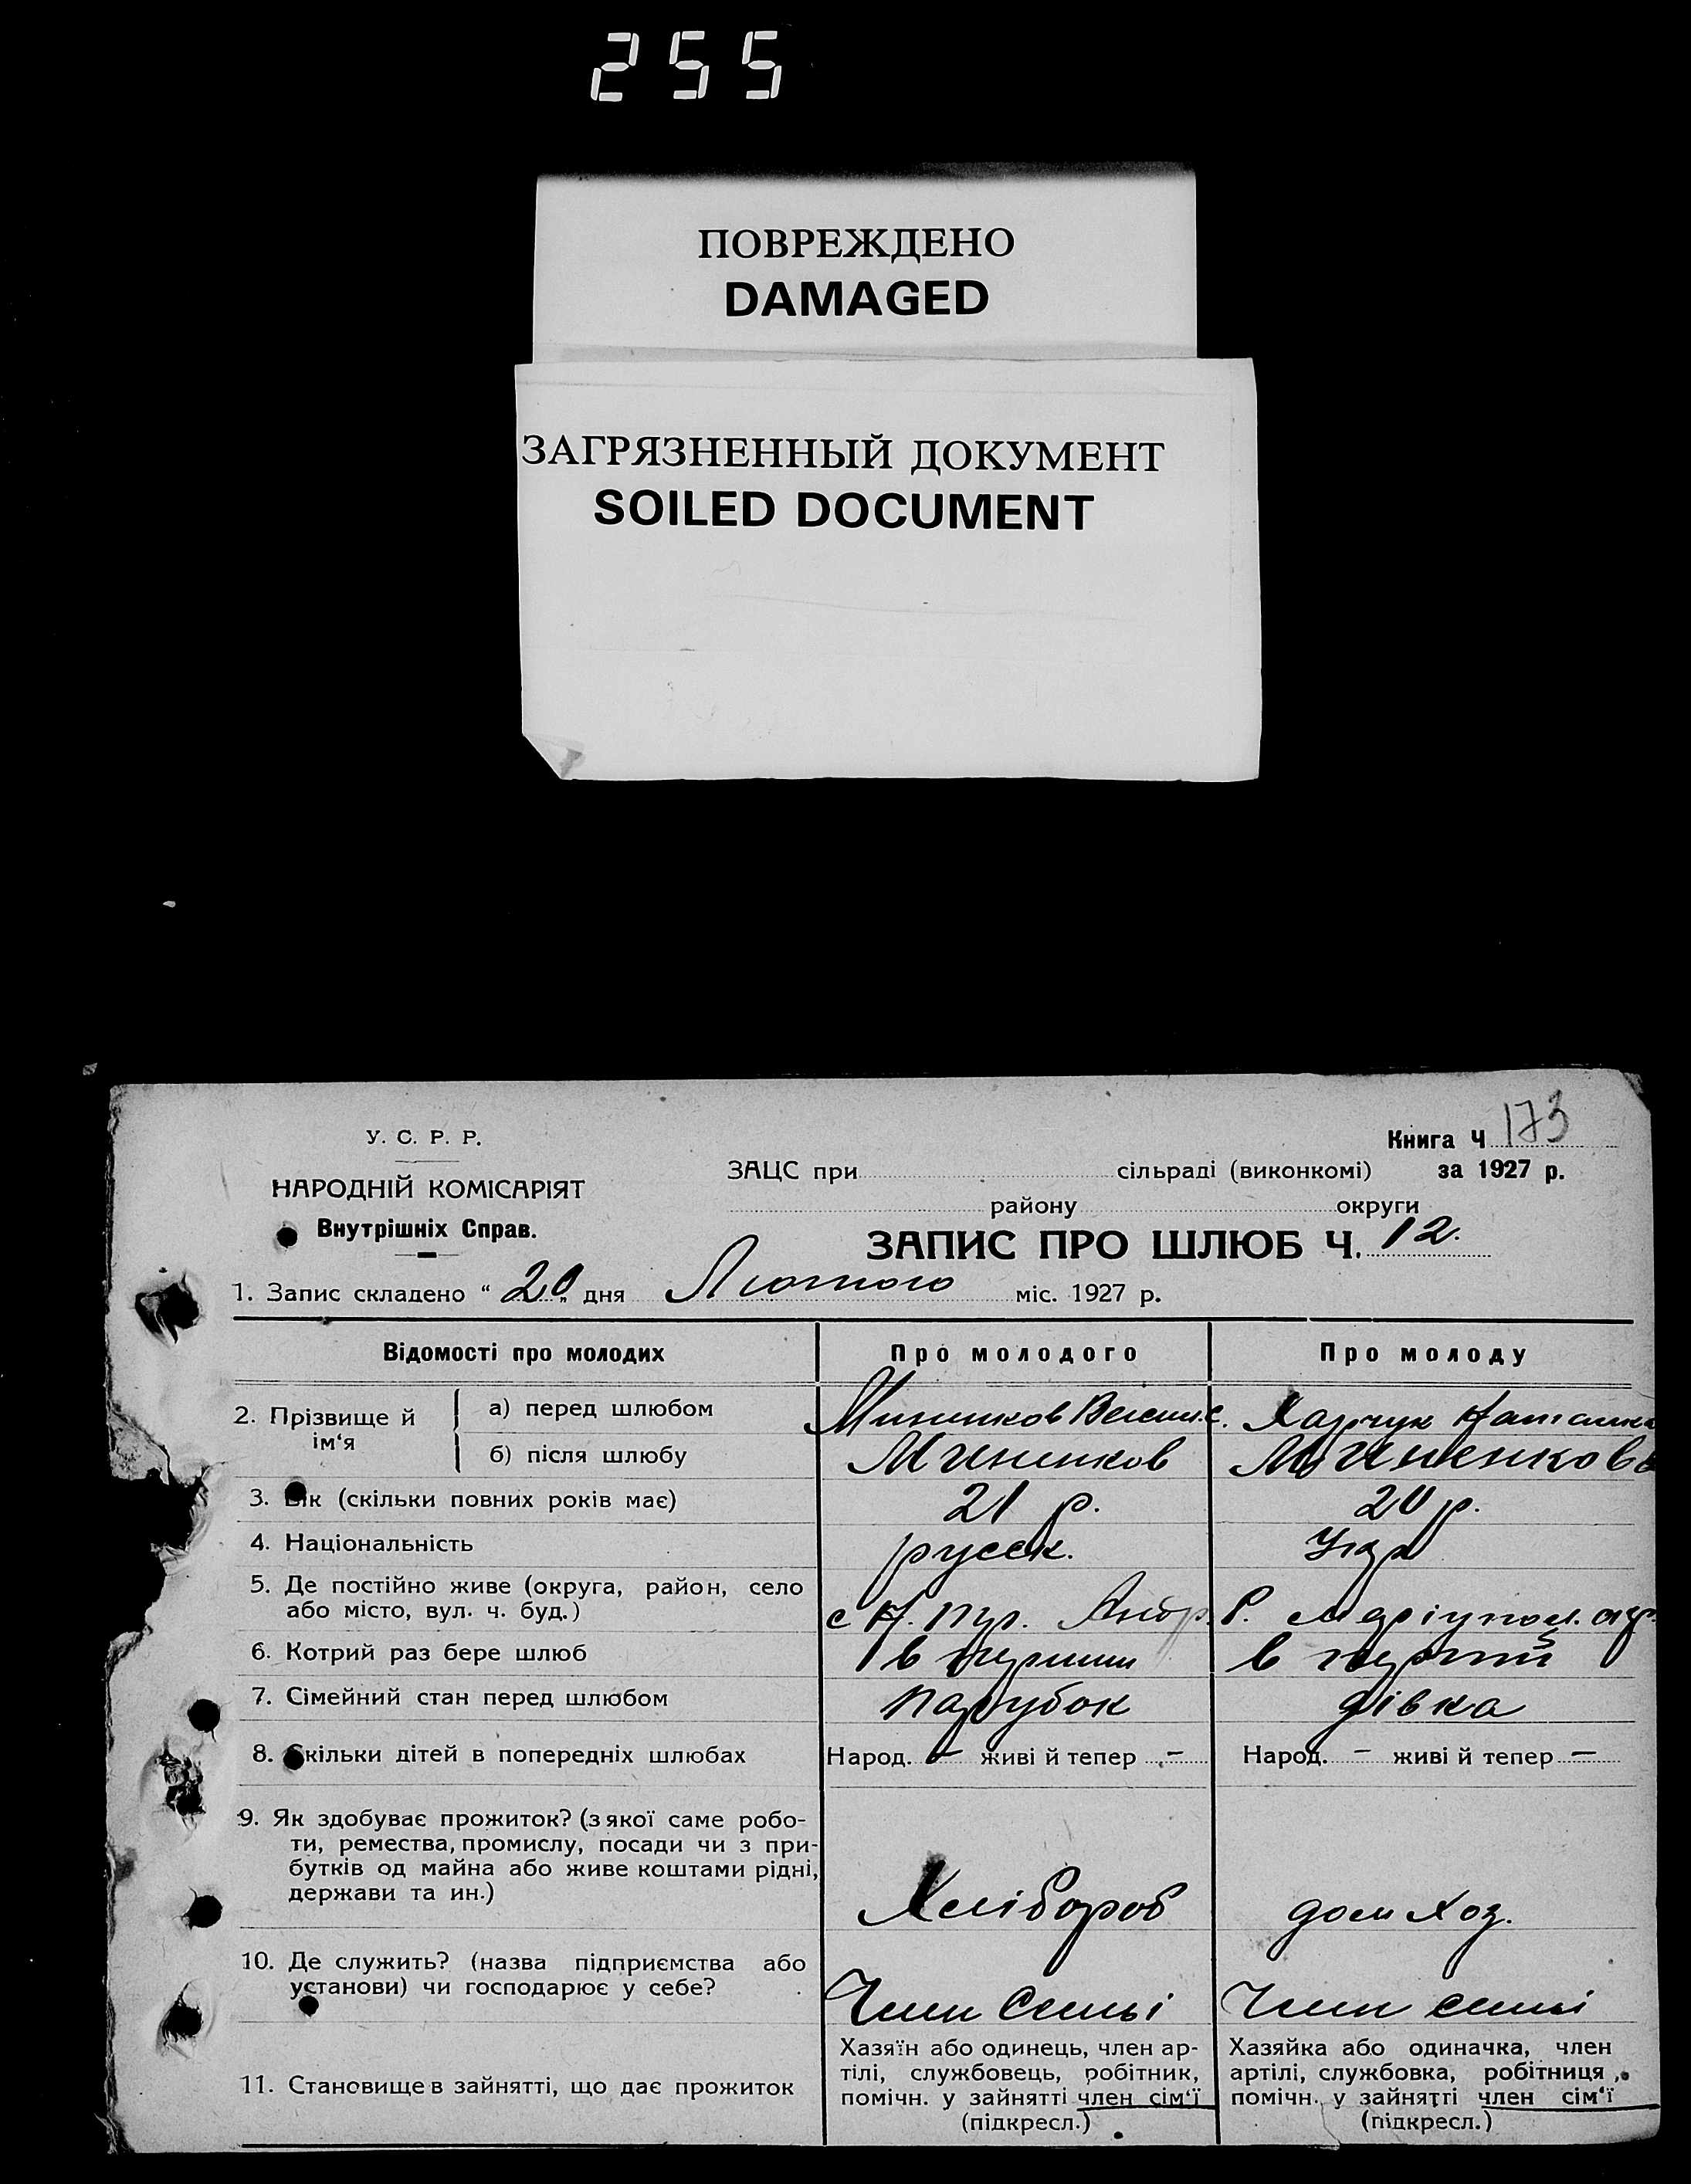 255
ПОВРЕЖДЕНО
DAMAGED
ЗАГРЯЗНЕННЫЙ ДОКУМЕНТ
SOILED DOCUMENT
У. С. Р. Р.
НАРОДНІЙ КОМІСАРІЯТ
Внутрішніх Справ.
Книга Ч 173
ЗАЦС при сільраді (виконкомі) за 1927 р.
району округи
ЗАПИС ПРО ШЛЮБ Ч. 12.
1. Запис складено “ 20 „ дня Лютого міс. 1927 р.
Відомості про молодих Про молодого Про молоду
2. Прізвище й ім‘я
а) перед шлюбом Харчук
б) після шлюбу
3. Вік (скільки повних років має) 21 р. 20 р.
4. Національність русск. Укр
5. Де постійно живе (округа, район, село
або місто, вул. ч. буд.) Маріупол. окр.
6. Котрий раз бере шлюб в перший в перший
7. Сімейний стан перед шлюбом парубок дівка
8. Скільки дітей в попередніх шлюбах Народ. – живі й тепер – Народ. – живі й тепер –
9. Як здобуває прожиток? (з якої саме робо-
ти, ремества, промислу, посади чи з при-
бутків од майна або живе коштами рідні,
держави та ин.) Хлібороб дом хоз.
10. Де служить? (назва підприємства або
установи) чи господарює у себе? Член семьі Член семьі
11. Становище в зайнятті, що дає прожиток
Хазяїн або одинець, член ар-
тілі, службовець, робітник,
помічн. у зайнятті член сім‘ї
(підкресл.)
Хазяйка або одиначка, член
артілі, службовка, робітниця,
помічн. у зайнятті член сім‘ї
(підкресл.)